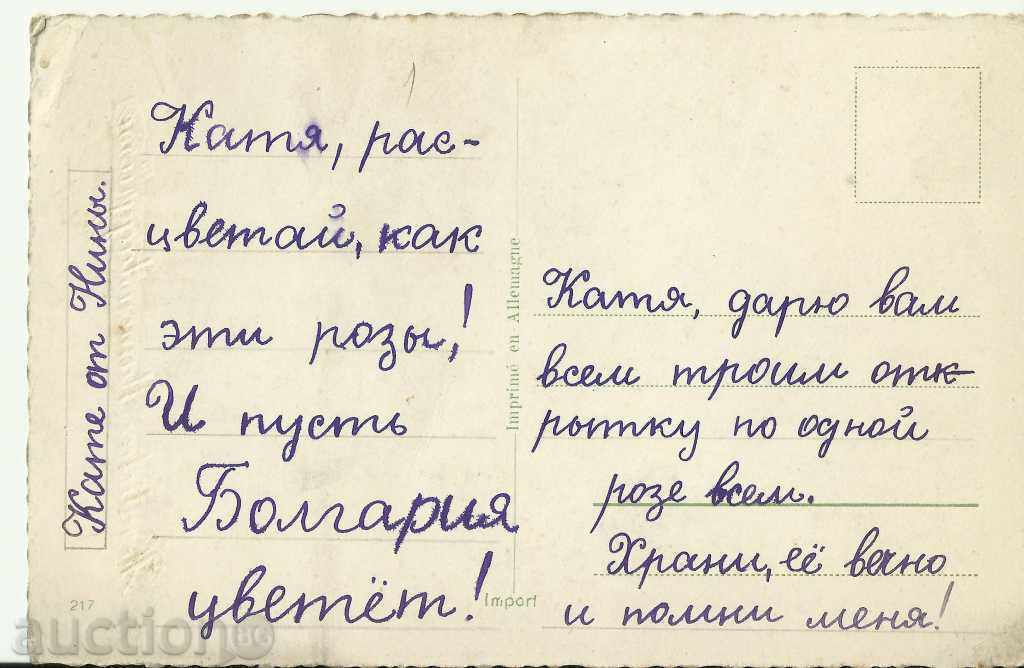 Кате от Нины.
Катя, рас-
цветай, как
эти розы!
И пусть
Болгария
цветёт!
217
Imprimé en Allemagne
Import
Катя, дарю вам
всем троим отк-
рытку по одной
розе всем.
Храни, её вечно
и помни меня!
auction.BG